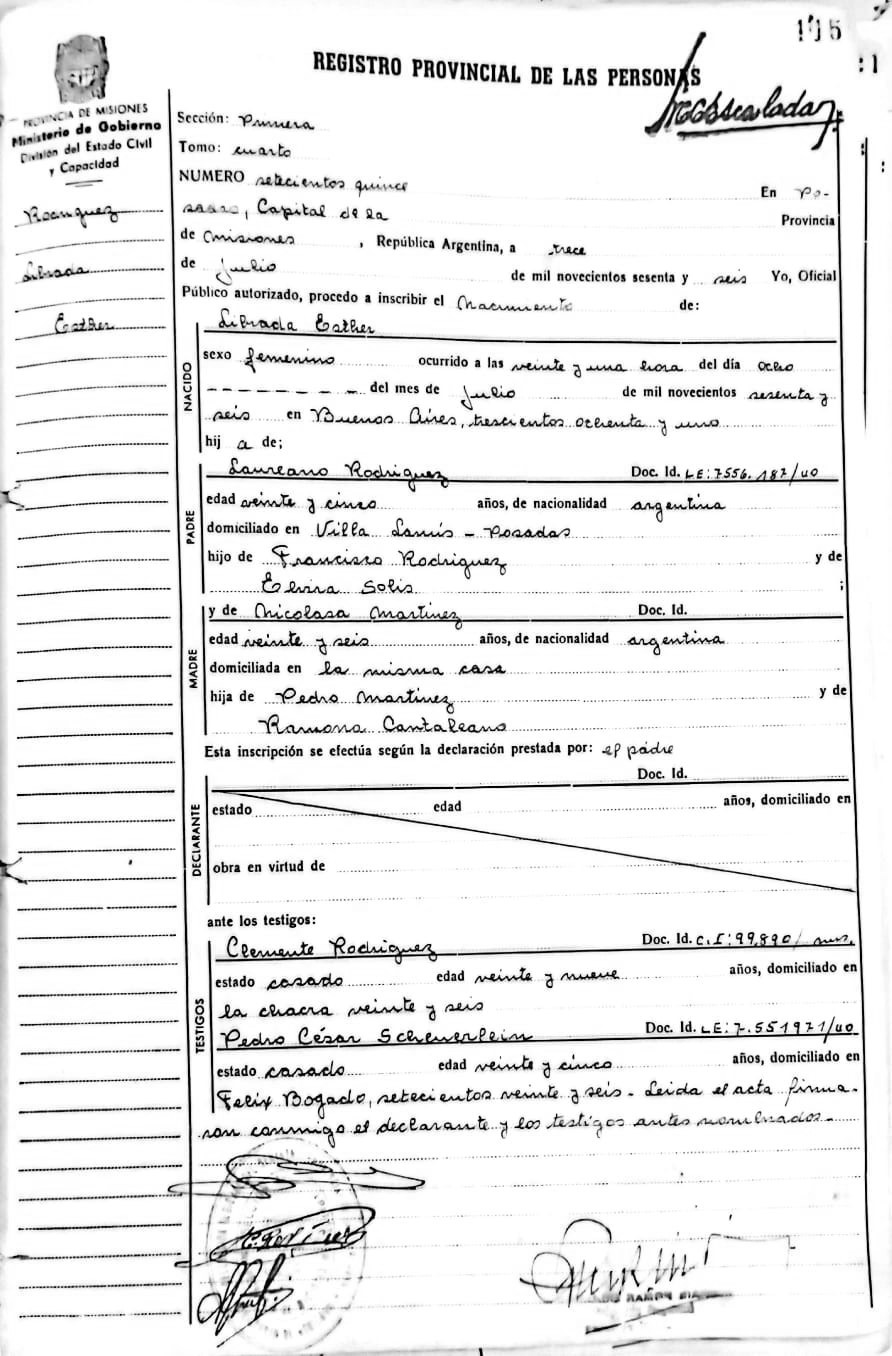 115
REGISTRO PROVINCIAL DE LAS PERSONAS
PROVINCIA DE MISIONES
Ministerio de Gobierno
División del Estado Civil
y Capacidad
Rodriguez
Librada
Esther
Sección: Primera
Tomo: cuarto
NUMERO setecientos quince
En Po-
sadas, Capital de la Provincia
de Misiones, República Argentina, a trece
de Julio de mil novecientos sesenta y seis Yo, Oficial
Público autorizado, procedo a inscribir el Nacimiento de:
NACIDO
Librada Esther
sexo femenino ocurrido a las veinte y una hora del día ocho
– – – – – – – – del mes de Julio de mil novecientos sesenta y
seis en Buenos Aires, trescientos ochenta y uno
hij a de;
PADRE
Laureano Rodriguez Doc. Id. LE: 7556.187/40
edad veinte y cinco años, de nacionalidad argentina
domiciliado en Villa Lanús - Posadas
hijo de Francisco Rodriguez y de
Elvira Solis ;
MADRE
y de Nicolasa Martinez Doc. Id.
edad veinte y seis años, de nacionalidad argentina
domiciliada en la misma casa
hija de Pedro Martinez y de
Ramona Cantaleano
Esta inscripción se efectúa según la declaración prestada por: el padre
Doc. Id.
DECLARANTE
estado edad años, domiciliado en
obra en virtud de
ante los testigos:
TESTIGOS
Clemente Rodriguez Doc. Id. C.I: 99,890/ mns.
estado casado edad veinte y nueve años, domiciliado en
la chacra veinte y seis
Pedro César Scheuerlein Doc. Id. LE: 7.551971/40
estado casado edad veinte y cinco años, domiciliado en
Felix Bogado, setecientos veinte y seis - Leida el acta firma-
ron conmigo el declarante y los testigos antes nombrados -
RAMON